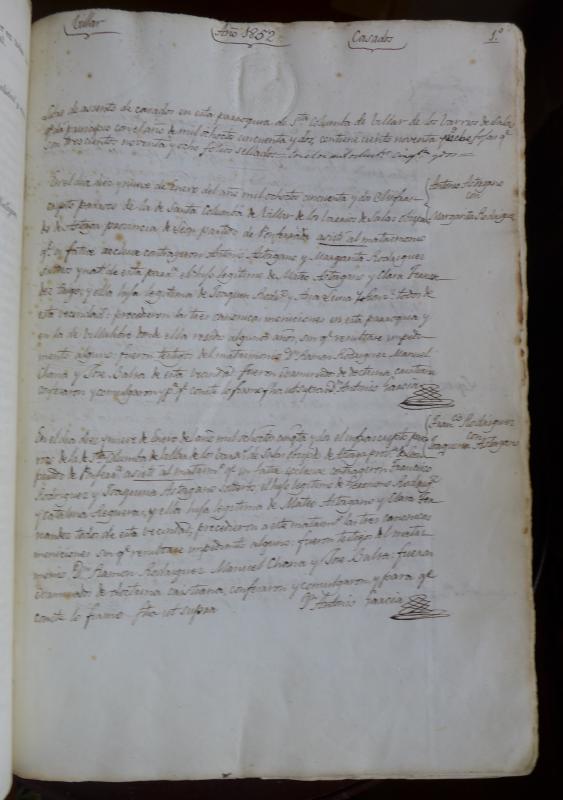 Villar Año 1852 Casados 1.º
Libro de asiento de casados en esta parroquia de S.ta Columba de Villar de los Barrios de Salas
q.e da principio con el año de mil ochocto cincuenta y dos, contiene ciento noventa y ocho fojas q.e
son trescientos noventa y ocho folios sellados
En el dia diez y nueve de Enero del año mil ochocto cincuenta y dos El infras-
cripto parroco de la de Santa Columba de Villar de los barrios de Salas obispa-
do de Astorga provincia de Leon partido de Ponferrada asistí al matrimonio
q.e in facie eclesie contrageron Antonio Astragano y Margarita Rodriguez
solteros y nat.s de esta parr.a el hijo legitimo de Mateo Astragano y Clara Fernan-
dez Trigo; y ella hija legitima de Joaquin Rodri.z y todos de
esta vecindad: precedieron las tres canonicas moniciones en esta parroquia y
en la de Villalibre donde ella residio algunos años, sin q.e resultare impedi-
mento alguno: fueron testigos del matrimonio D.n Ramon Rodriguez Manuel
Chana y Jose Balea de esta vecindad. fueron examinados de doctrina cristiana
confesaron y comulgaron y p.a q.e conste lo firmo fho ut supra D.n Antonio Garcia
Antonio Astragano
con
Margarita Rodriguez
En el dia diez y nueve de Enero del año mil ochocto cinq.ta y dos el infrascripto par-
roco de la de S.ta Columba de Villar de los barr.s de Salas obispd.o de Astorga prov.a de Leon
partido de Ponferr.a asistí al matrim.o q.e in facie eclesie contrageron Francisco
Rodriguez y Joaquina Astragano solteros, el hijo legitimo de Rodrig.z
y Catalina Segueras, y ella hija legitima de Mateo Astragano y Clara Fer-
nandez todos de esta vecindad, precedieron a este matrim.o las tres canonicas
moniciones sin q.e resultare impedimento alguno: fueron testigos del matri-
monio D.n Ramon Rodriguez Manuel Chana y Jose Balea: fueron
examinados de doctrina cristiana, confesaron y comulgaron y para q.e
conste lo firmo fho ut supra D.n Antonio Garcia
Fran.co Rodriguez
con
Joaquina Astragano